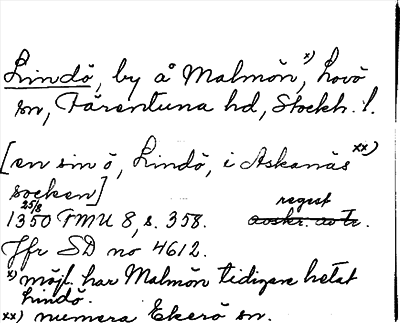 Lindö, by å Malmön,x) Lovö
sn, Färentuna hd, Stockh. l.
[en sin ö, Lindö, i Askanäs xx)
socken]
25/8 regest
1350 FMU 8, s. 358. avskr. avtr.
Jfr SD no 4612.
x) möjl. har Malmön tidigare hetat
Lindö.
xx) numera Ekerö sn.